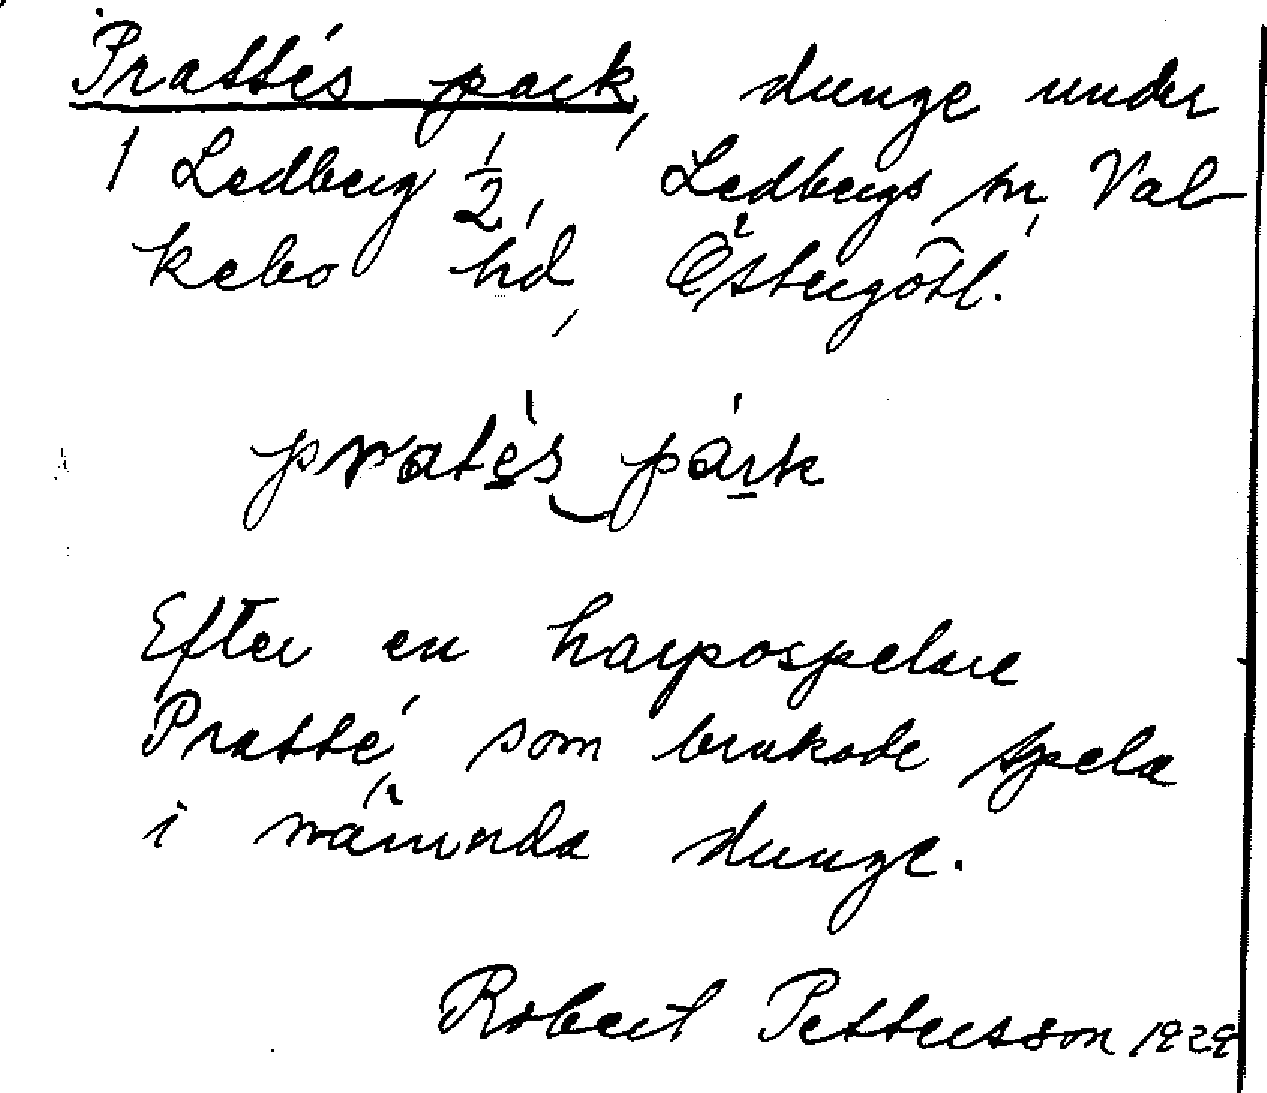 Prattés park, dunge under
1 Ledberg 1/2, Ledbergs sn, Val-
kebo hd, Östergötl.
pratés park
Efter en harpospelare
Pratté, som brukade spela
i nämnda dunge.
Robert Pettersson 1928